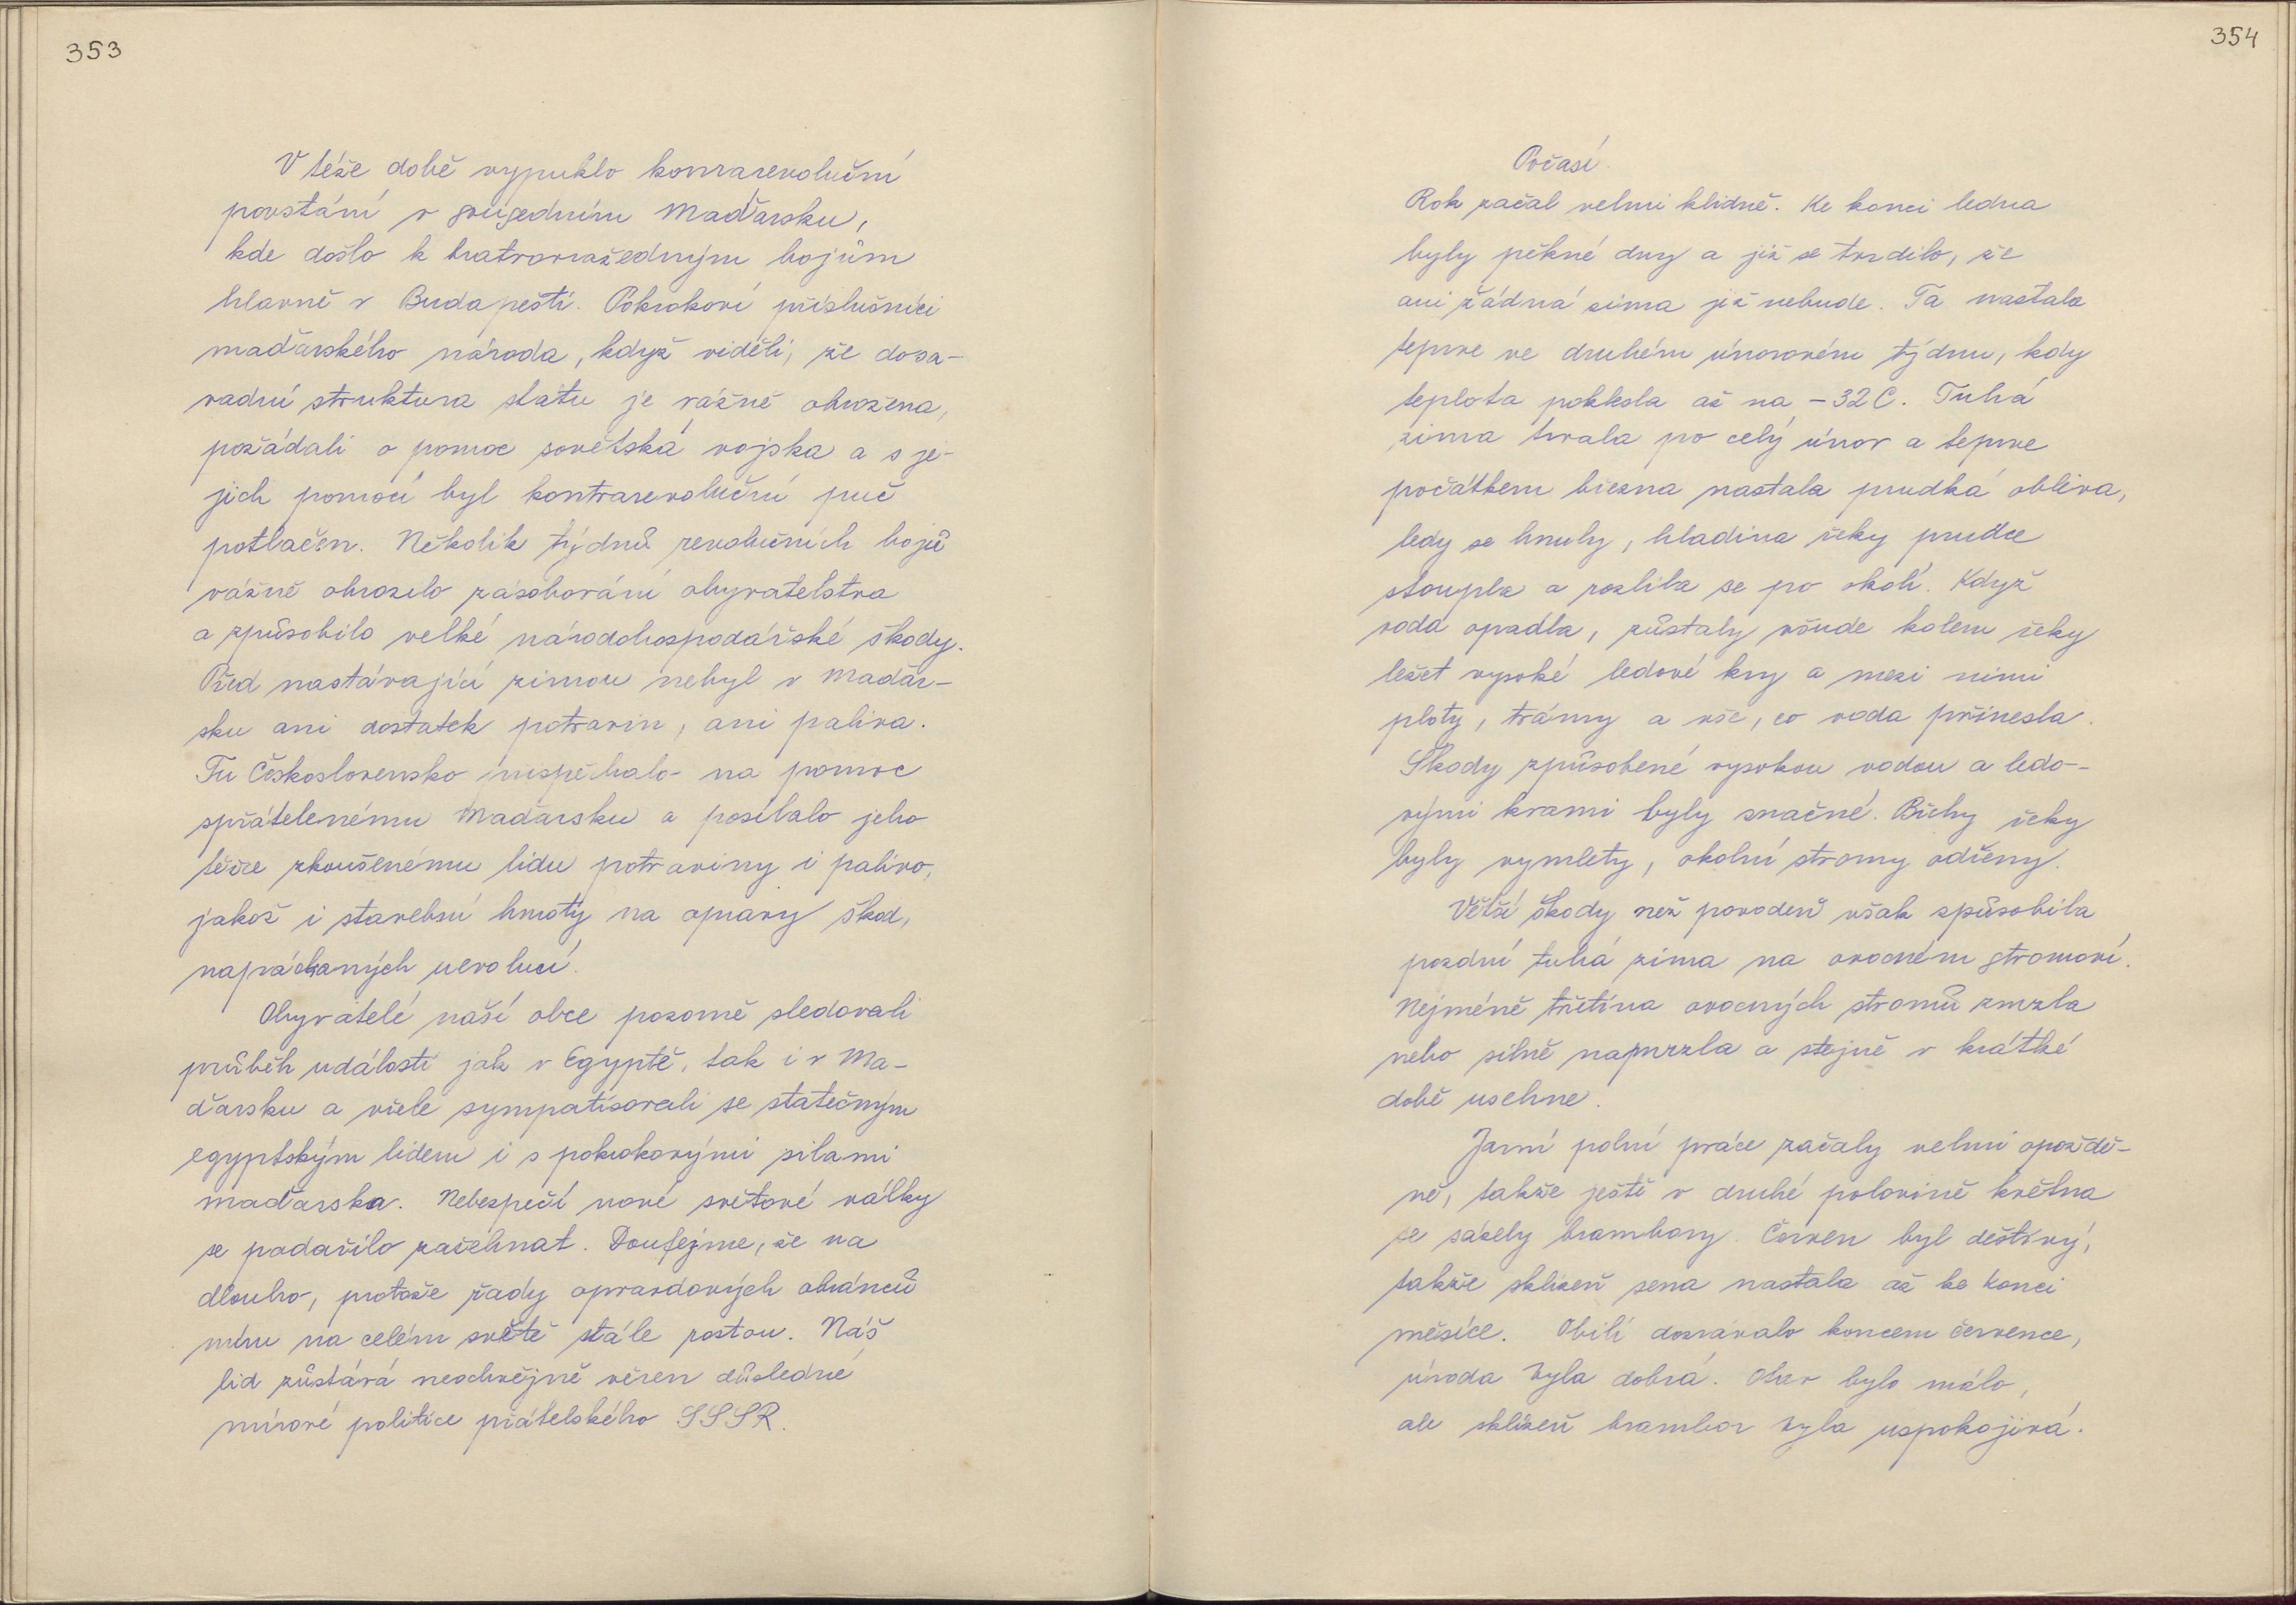 353
V téže době vypuklo kontrarevoluční
povstání v sousedním Maďarsku,
kde došlo k bratrovražedným bojům
hlavně v Budapešti. Pokrokoví příslušníci
maďarského národa, když viděli, že dosa-
vadní struktura státu je vážně ohrožena,
požádali o pomoc sovětská vojska a s je-
jich pomocí byl kontrarevoluční puč
potlačen. Několik týdnů revolučních bojů
vážně ohrozilo zásobování obyvatelstva
a způsobilo velké národohospodářské škody.
Před nastávající zimou nebyl v Maďar-
sku ani dostatek potravin, ani paliva.
Tu Československo přispěchalo na pomoc
spřátelenému Maďarsku a posílalo jeho
těžce zkoušenému lidu potraviny i palivo,
jakož i stavební hmoty na opravy škod,
napáchaných revolucí.
Obyvatelé naší obce pozorně sledovali
průběh událostí jak v Egyptě, tak i v Ma-
ďarsku a vřele sympatisovali se statečným
egyptským lidem i s pokrokovými silami
maďarska. Nebezpečí nové světové války
se podařilo zažehnat. Doufejme, že na
dlouho, protože řady opravdových obránců
míru na celém světě stále rostou. Náš
lid zůstává neochvějně věren důsledné
mírové politice přátelského SSSR.
354
Počasí.
Rok začal velmi klidně. Ke konci ledna
byly pěkné dny a již se tvrdilo, že
ani žádná zima již nebude. Ta nastala
teprve ve druhém únorovém týdnu, kdy
teplota poklesla až na -32 C. Tuhá
zima trvala po celý únor a teprve
počátkem března nastala prudká obleva,
ledy se hnuly, hladina řeky prudce
stoupla a rozlila se po okolí. Když
voda opadla, zůstaly všude kolem řeky
ležet vysoké ledové kry a mezi nimi
ploty, trámy a vše, co voda přinesla.
Škody způsobené vysokou vodou a ledo-
vými krami byly značné. Břehy řeky
byly vymlety, okolní stromy odřeny.
Větší škody než povodeň však způsobila
pozdní tuhá zima na ovocném stromoví.
Nejméně třetina ovocných stromů zmrzla
nebo silně namrzla a stejně v krátké
době uschne.
Jarní polní práce začaly velmi opoždě-
ně, takže ještě v druhé polovině května
se sázely brambory. Červen byl deštivý,
takže sklizeň sena nastala až ke konci
měsíce. Obilí dozrávalo koncem července,
úroda byla dobrá. Otav bylo málo,
ale sklizeň brambor byla uspokojivá.